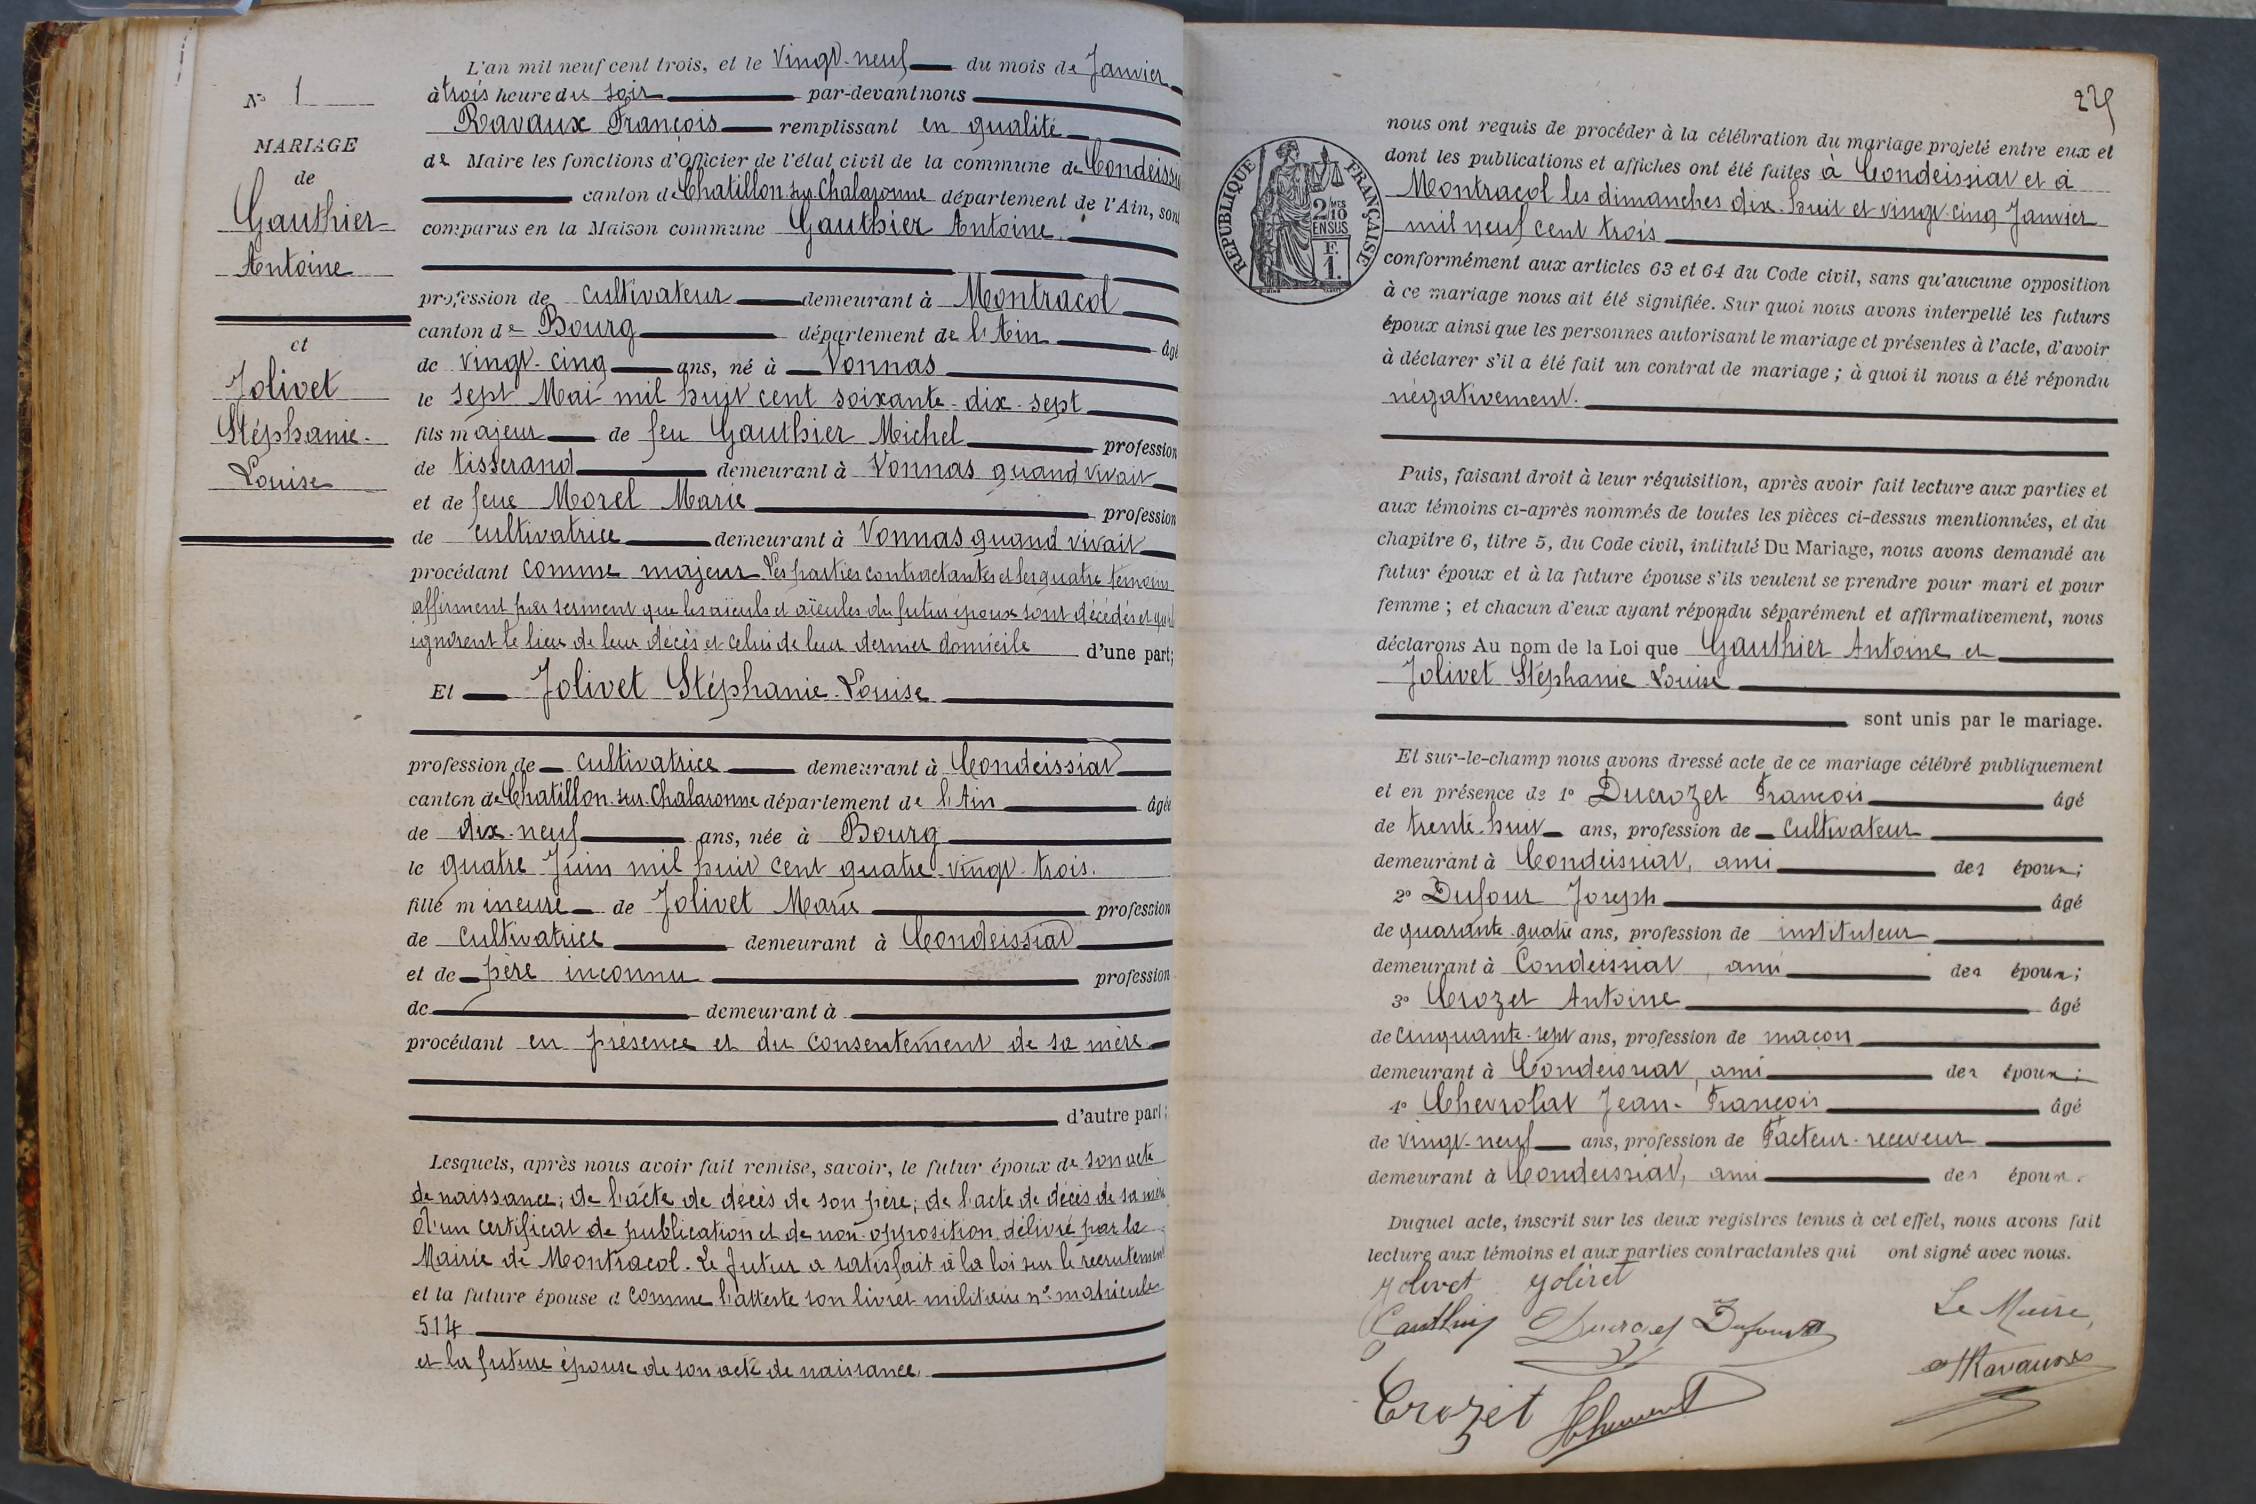 N° 1
MARIAGE
de
Gauthier
Antoine
et
Jolivet
Stéphanie-
Louise
L'an mil neuf cent trois, et le vingt-neuf du mois de Janvier
à trois heure du soir par-devant nous
Ravaux François remplissant en qualité
de Maire les fonctions d'Officier de l'état civil de la commune de Condeissiat
canton de Chatillon sur Chalaronne département de l'Ain, sont
comparus en la Maison commune Gauthier Antoine
profession de cultivateur demeurant à Montracol
canton de Bourg département de l'Ain âgé
de vingt-cinq ans, né à Vonnas
le sept Mai mil huit cent soixante-dix-sept
fils majeur de feu Gauthier Michel profession
de tisserand demeurant à Vonnas quand vivait
et de feue Morel Marie profession
de cultivatrice demeurant à Vonnas quand vivait
procédant comme majeur. Les parties contractantes et les quatre témoins
affirment par serment que les aïeuls et aïeules du futur époux sont décédés et qu'ils
ignorent le lieu de leur décès et celui de leur dernier domicile d'une part;
Et Jolivet Stéphanie-Louise
profession de cultivatrice demeurant à Condeissiat
canton de Chatillon sur Chalaronne département de l'Ain âgée
de dix-neuf ans, née à Bourg
le quatre Juin mil huit cent quatre-vingt-trois.
fille mineure de Jolivet Marie profession
de cultivatrice demeurant à Condeissiat
et de père inconnu profession
de demeurant à
procédant en présence et du consentement de sa mère
d'autre part;
Lesquels, après nous avoir fait remise, savoir, le futur époux de son acte
de naissance; de l'acte de décès de son père; de l'acte de décès de sa mère
d'un certificat de publication et de non-opposition délivré par la
Mairie de Montracol. Le futur a satisfait à la loi sur le recrutement
et la future épouse d comme l'atteste son livret militaire n° matricule
514
et la future épouse de son acte de naissance.
225
RÉPUBLIQUE FRANÇAISE
2/10
EN SUS
F.
1.
nous ont requis de procéder à la célébration du mariage projeté entre eux et
dont les publications et affiches ont été faites à Condeissiat et à
Montracol les dimanches dix-huit et vingt-cinq Janvier
mil neuf cent trois
conformément aux articles 63 et 64 du Code civil, sans qu'aucune opposition
à ce mariage nous ait été signifiée. Sur quoi nous avons interpellé les futurs
époux ainsi que les personnes autorisant le mariage et présentes à l'acte, d'avoir
à déclarer s'il a été fait un contrat de mariage; à quoi il nous a été répondu
négativement.
Puis, faisant droit à leur réquisition, après avoir fait lecture aux parties et
aux témoins ci-après nommés de toutes les pièces ci-dessus mentionnées, et du
chapitre 6, titre 5, du Code civil, intitulé Du Mariage, nous avons demandé au
futur époux et à la future épouse s'ils veulent se prendre pour mari et pour
femme; et chacun d'eux ayant répondu séparément et affirmativement, nous
déclarons Au nom de la Loi que Gauthier Antoine et
Jolivet Stéphanie Louise
sont unis par le mariage.
Et sur-le-champ nous avons dressé acte de ce mariage célébré publiquement
et en présence de 1° Ducrozet François âgé
de trente-huit ans, profession de cultivateur
demeurant à Condeissiat, ami des époux;
2° Dufour Joseph âgé
de quarante-quatre ans, profession de instituteur
demeurant à Condeissiat, ami des époux;
3° Crozet Antoine âgé
de cinquante-sept ans, profession de maçon
demeurant à Condeissiat, ami des époux;
4° Chevrolat Jean-François âgé
de vingt-neuf ans, profession de Facteur-receveur
demeurant à Condeissiat, ami des époux.
Duquel acte, inscrit sur les deux registres tenus à cet effet, nous avons fait
lecture aux témoins et aux parties contractantes qui ont signé avec nous.
Jolivet Jolivet
Gauthier Ducrozet Dufour
Le Maire,
Ravaux
Crozet